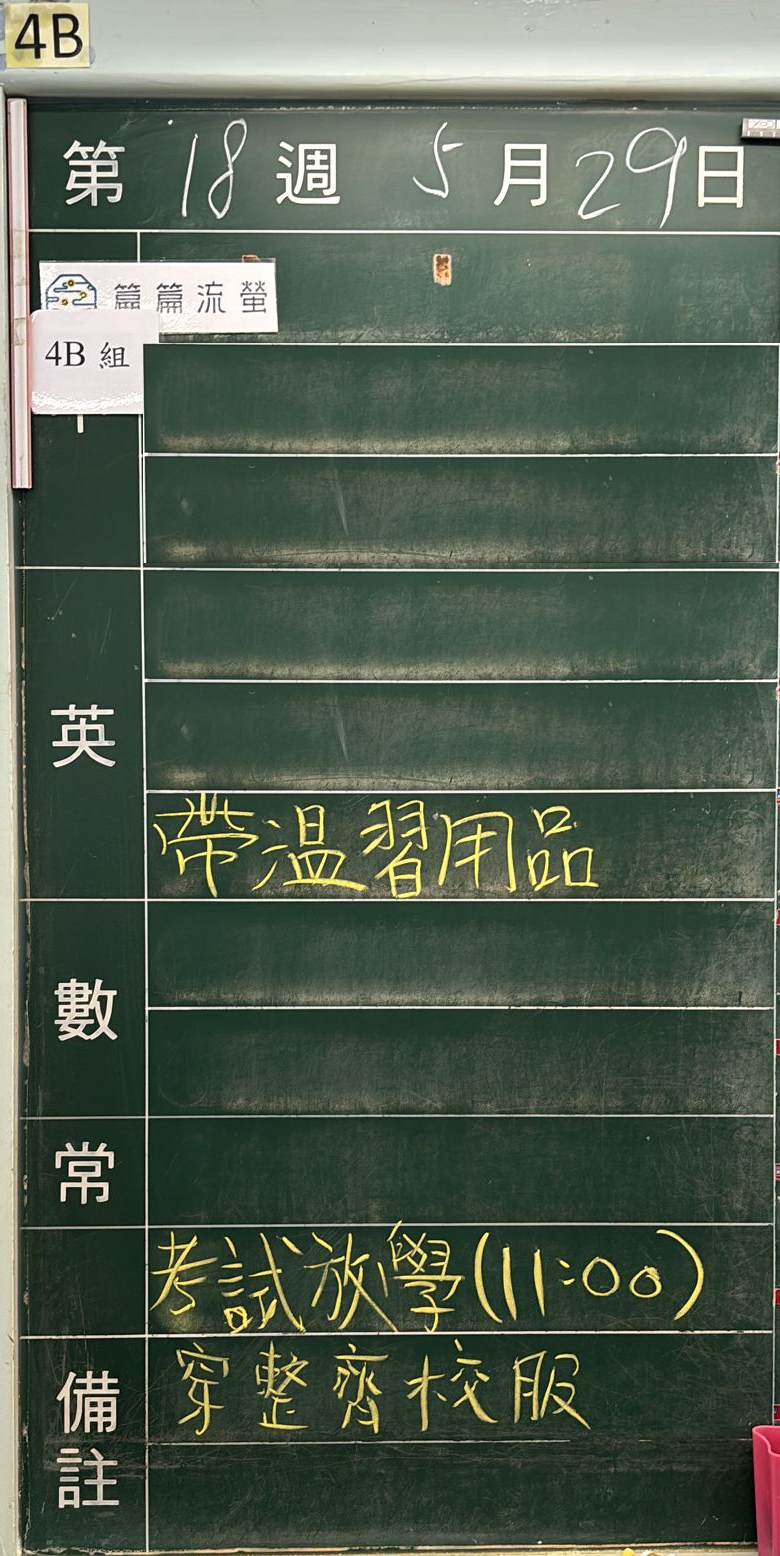 4B
第 18 週 5 月 29 日
篇篇流螢
4B 組
英
帶温習用品
數
常
考試放學(11:00)
備註
穿整齊校服